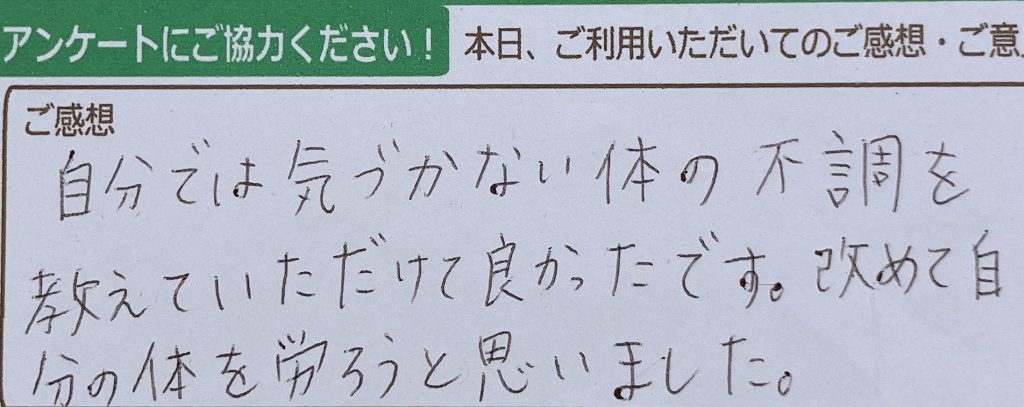 アンケートにご協力ください！ 本日、ご利用いただいてのご感想・ご意
ご感想
自分では気づかない体の不調を
教えていただけて良かったです。改めて自
分の体を労ろうと思いました。